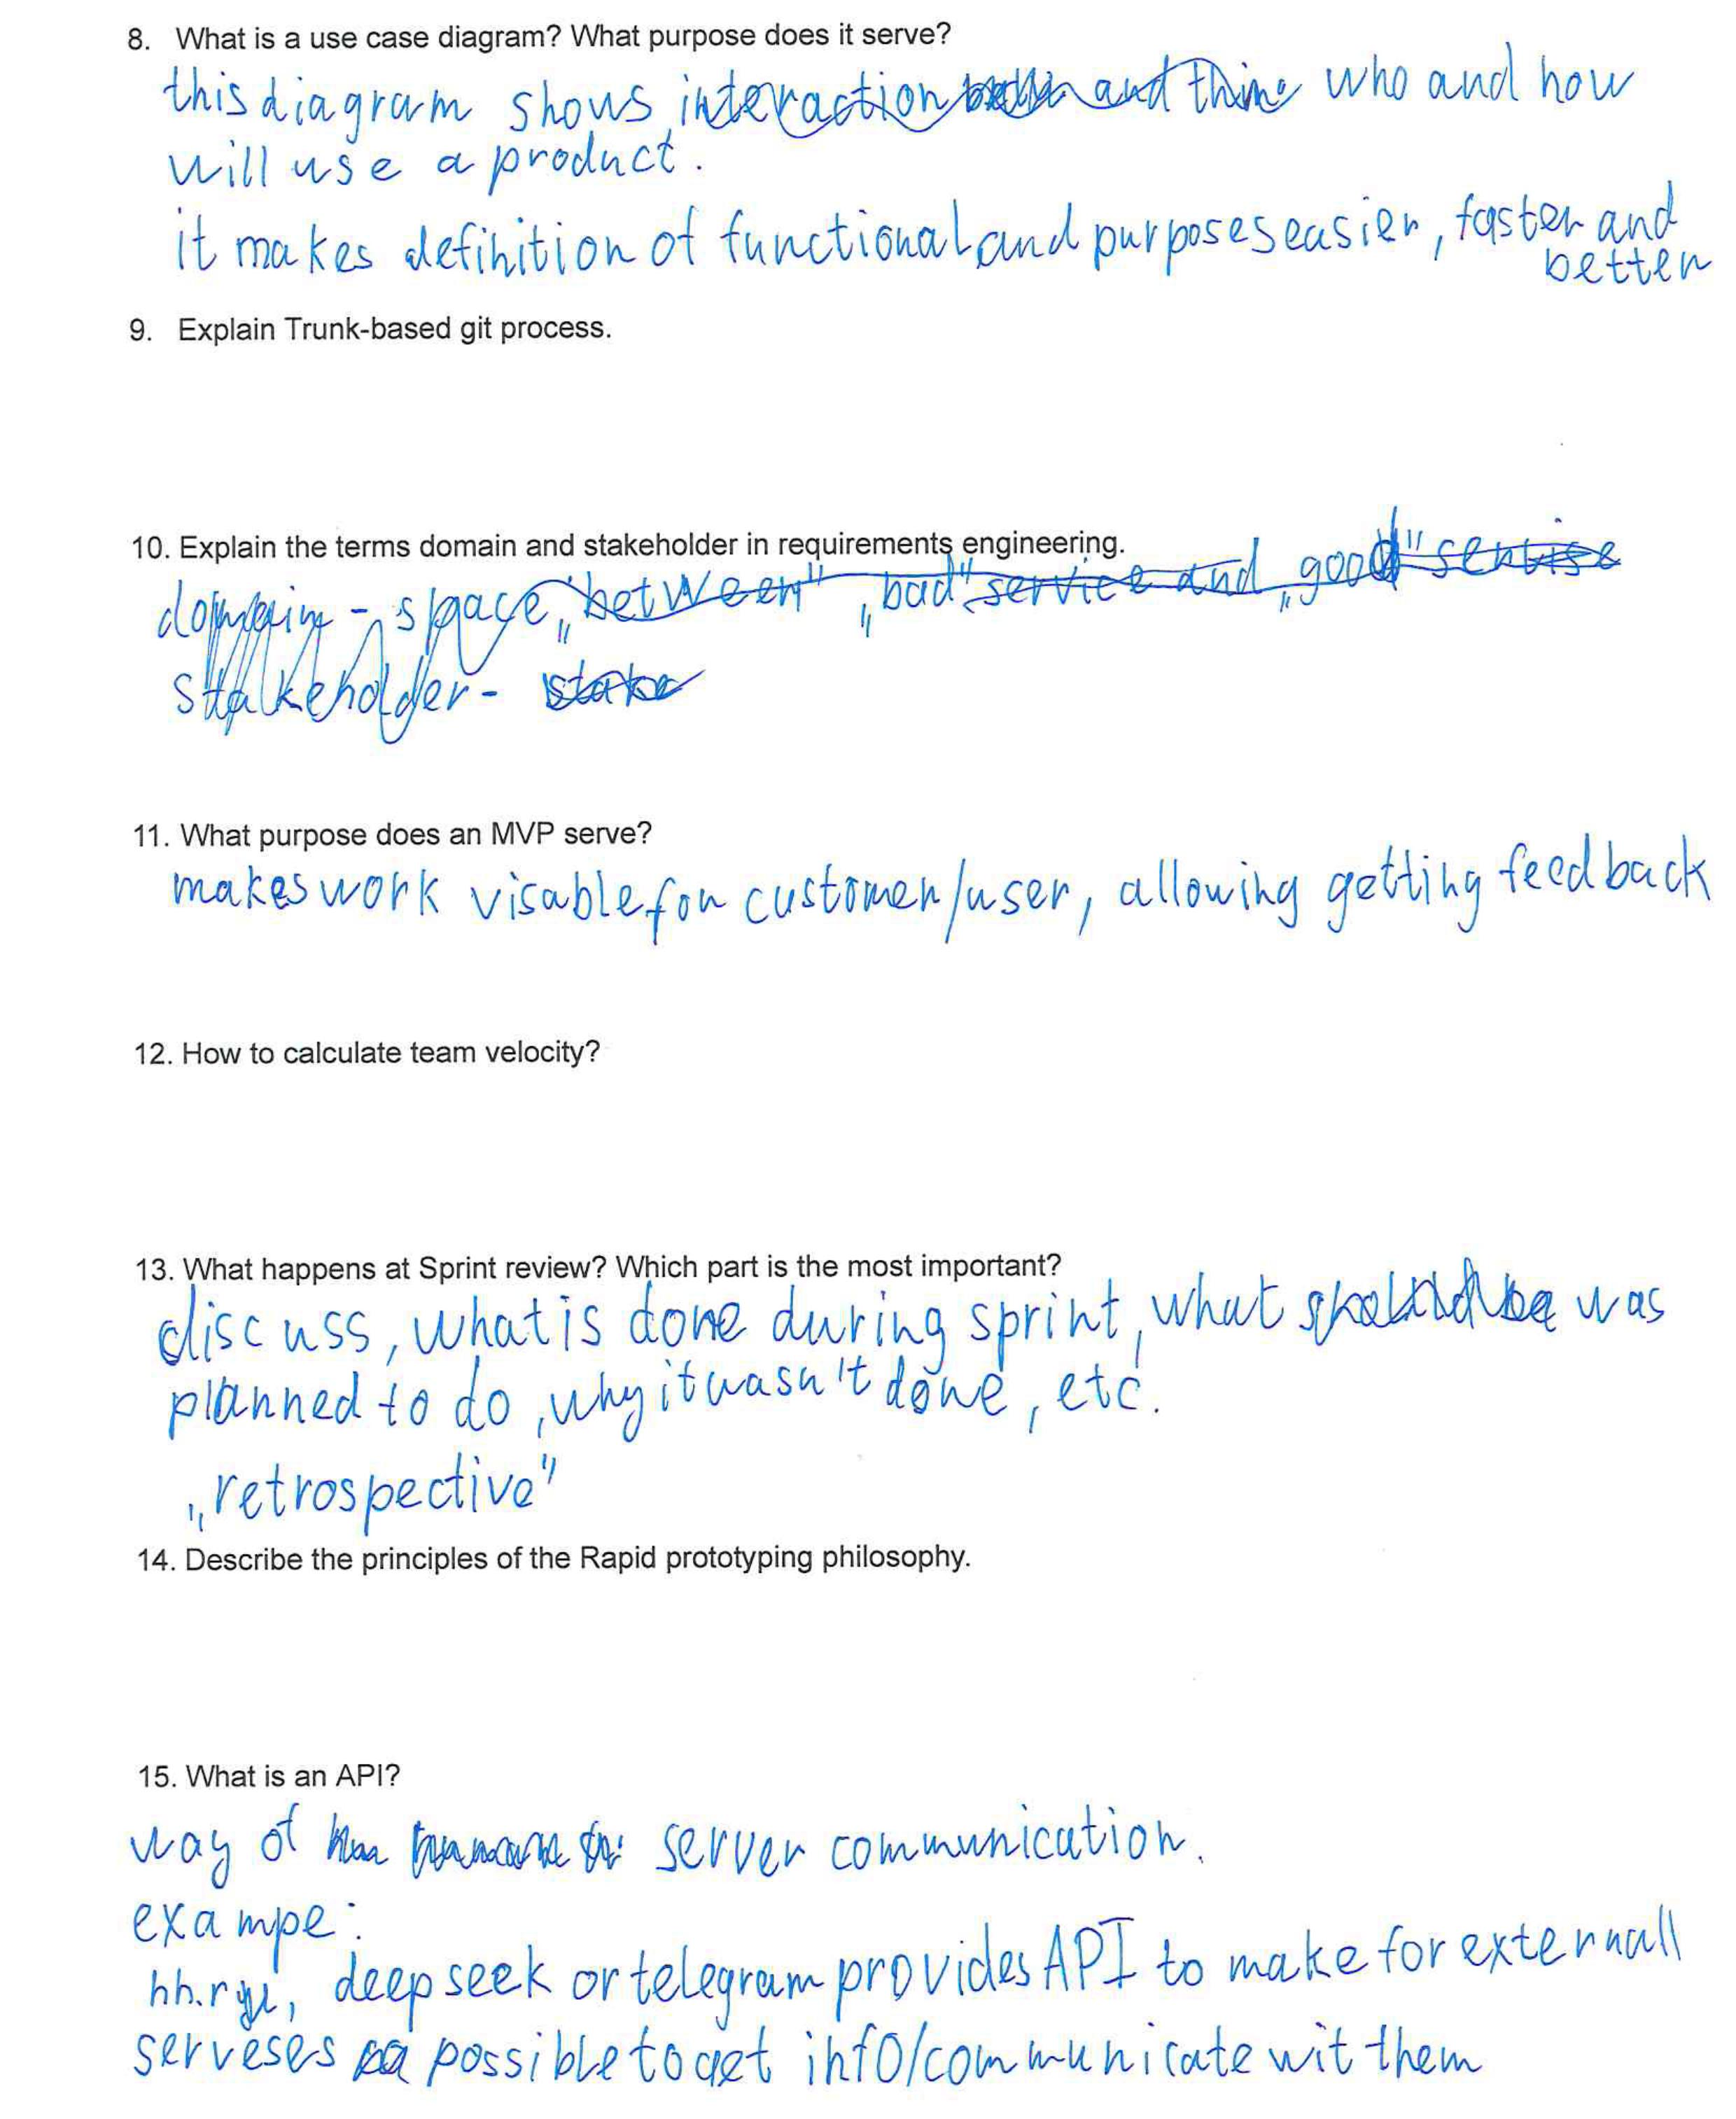 8. What is a use case diagram? What purpose does it serve?
this diagram shows interaction and thing who and how
will use a product.
it makes definition of functional and purposes easier, faster and
better
9. Explain Trunk-based git process.
10. Explain the terms domain and stakeholder in requirements engineering.
domain - space „between" „bad" service and „good" servise
stakeholder - stake
11. What purpose does an MVP serve?
makes work visable for customer/user, allowing getting feedback
12. How to calculate team velocity?
13. What happens at Sprint review? Which part is the most important?
discuss, what is done during sprint, what should be was
planned to do, why it wasn't done, etc.
„retrospective"
14. Describe the principles of the Rapid prototyping philosophy.
15. What is an API?
way of server communication.
exampe:
deepseek or telegram provides API to make for externall
serveses possible to get info/communicate wit them